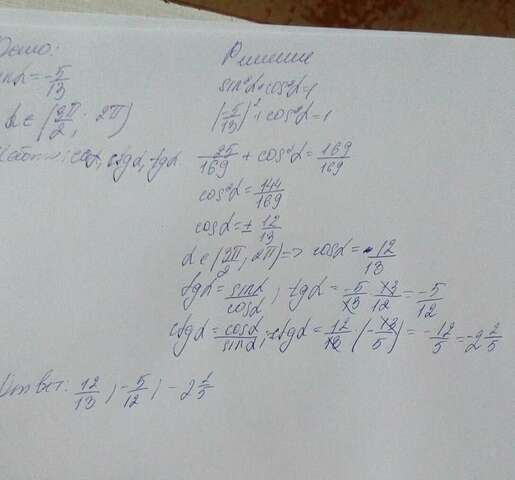 Дано:
sinα = -5/13
α ∈ (3π/2; 2π)
Найти: cosα, ctgα, tgα
Решение
sin²α + cos²α = 1
(-5/13)² + cos²α = 1
25/169 + cos²α = 169/169
cos²α = 144/169
cosα = ± 12/13
α ∈ (3π/2; 2π) => cosα = 12/13
tgα = sinα/cosα; tgα = -5/13 · 13/12 = -5/12
ctgα = cosα/sinα; ctgα = 12/13 · (-13/5) = -12/5 = -2 2/5
Ответ: 12/13; -5/12; -2 2/5